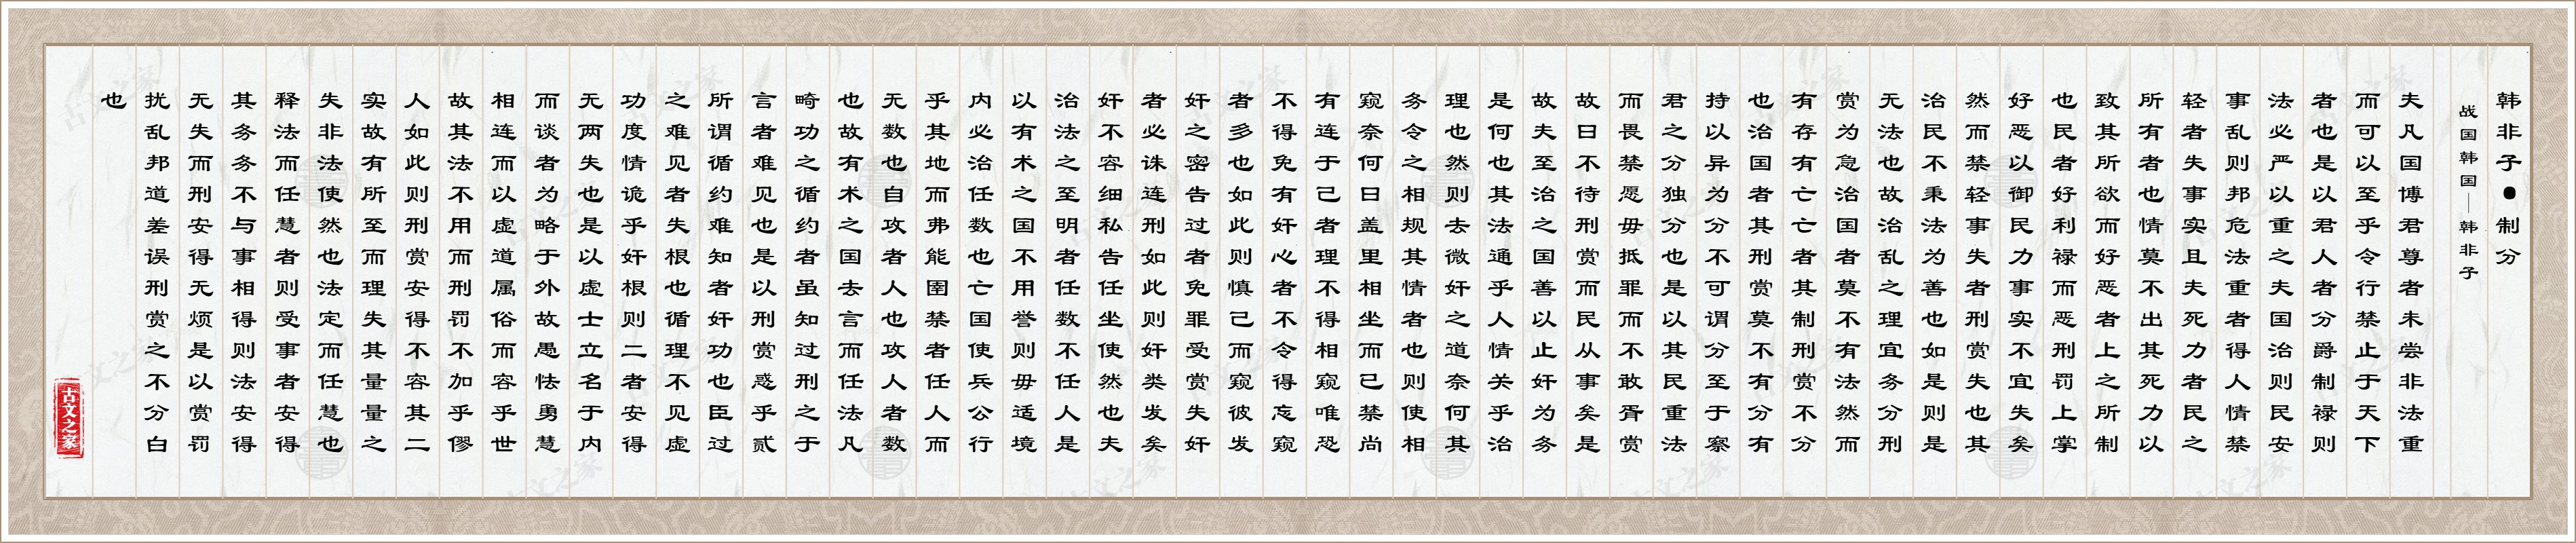 韩非子●制分
战国韩国—韩非子
夫凡国博君尊者未尝非法重
而可以至乎令行禁止于天下
者也是以君人者分爵制禄则
法必严以重之夫国治则民安
事乱则邦危法重者得人情禁
轻者失事实且夫死力者民之
所有者也情莫不出其死力以
致其所欲而好恶者上之所制
也民者好利禄而恶刑罚上掌
好恶以御民力事实不宜失矣
然而禁轻事失者刑赏失也其
治民不秉法为善也如是则是
无法也故治乱之理宜务分刑
赏为急治国者莫不有法然而
有存有亡亡者其制刑赏不分
也治国者其刑赏莫不有分有
持以异为分不可谓分至于察
君之分独分也是以其民重法
而畏禁愿毋抵罪而不敢胥赏
故曰不待刑赏而民从事矣是
故夫至治之国善以止奸为务
是何也其法通乎人情关乎治
理也然则去微奸之道奈何其
务令之相规其情者也则使相
窥奈何曰盖里相坐而已禁尚
有连于己者理不得相窥唯恐
不得免有奸心者不令得忘窥
者多也如此则慎己而窥彼发
奸之密告过者免罪受赏失奸
者必诛连刑如此则奸类发矣
奸不容细私告任坐使然也夫
治法之至明者任数不任人是
以有术之国不用誉则毋适境
内必治任数也亡国使兵公行
乎其地而弗能圉禁者任人而
无数也自攻者人也攻人者数
也故有术之国去言而任法凡
畸功之循约者虽知过刑之于
言者难见也是以刑赏惑乎贰
所谓循约难知者奸功也臣过
之难见者失根也循理不见虚
功度情诡乎奸根则二者安得
无两失也是以虚士立名于内
而谈者为略于外故愚怯勇慧
相连而以虚道属俗而容乎世
故其法不用而刑罚不加乎僇
人如此则刑赏安得不容其二
实故有所至而理失其量量之
失非法使然也法定而任慧也
释法而任慧者则受事者安得
其务务不与事相得则法安得
无失而刑安得无烦是以赏罚
扰乱邦道差误刑赏之不分白
也
古文之家